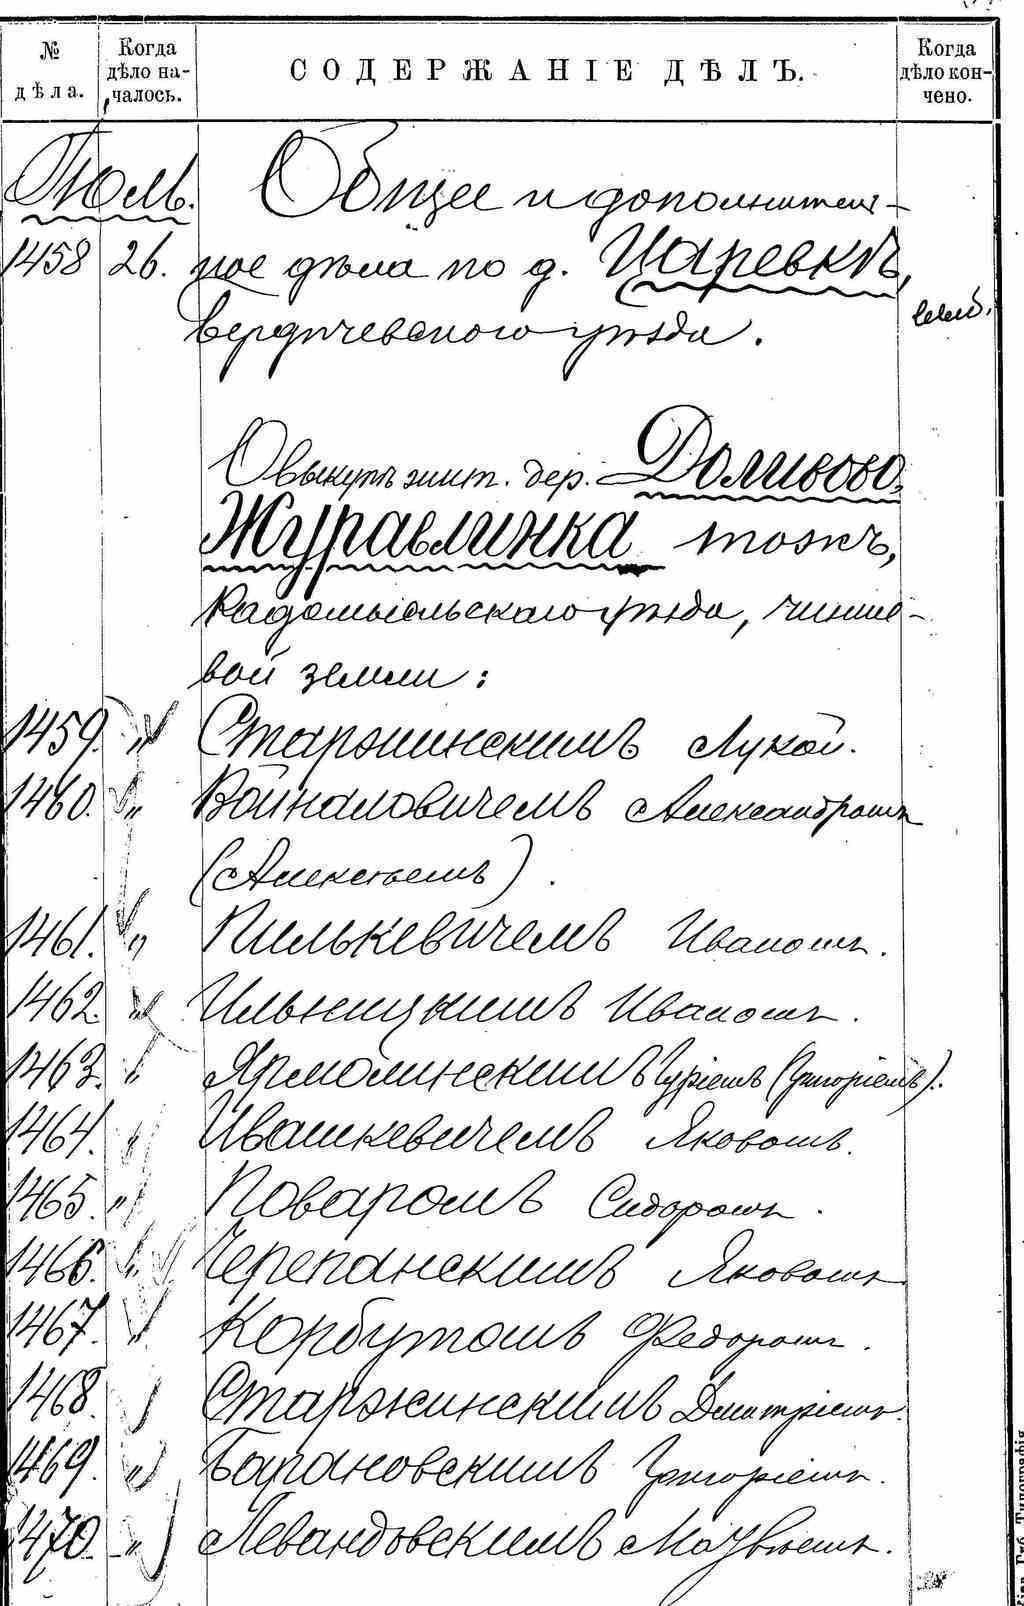 № дѣла.
Когда дѣло началось.
СОДЕРЖАНІЕ ДѢЛЪ.
Когда дѣло кончено.
Іюль. Общее и дополнитель-
1458 26. ное дѣла по д. Царевкѣ,
Бердичевского уѣзда.
О выкупѣ жит. дер. Доливово-
Журавлинка тожъ,
Радомысльскаго уѣзда, чинше-
вой земли:
1459. " Старжинскимъ Лукой.
1460. " Войналовичемъ Александромъ
(Алексѣемъ).
1461. " Пилькевичемъ Иваномъ.
1462. " Ильницкимъ Иваномъ.
1463. " Ярмолинскимъ Гуріемъ (Григоріемъ).
1464. " Ивашкевичемъ Яковомъ.
1465. " Поваромъ Сидоромъ.
1466. " Черепанскимъ Яковомъ
1467. " Корбутомъ Федоромъ.
1468. " Старжинскимъ Дмитріемъ.
1469. " Барановскимъ Григоріемъ.
1470. " Левандовскимъ Матвѣемъ.